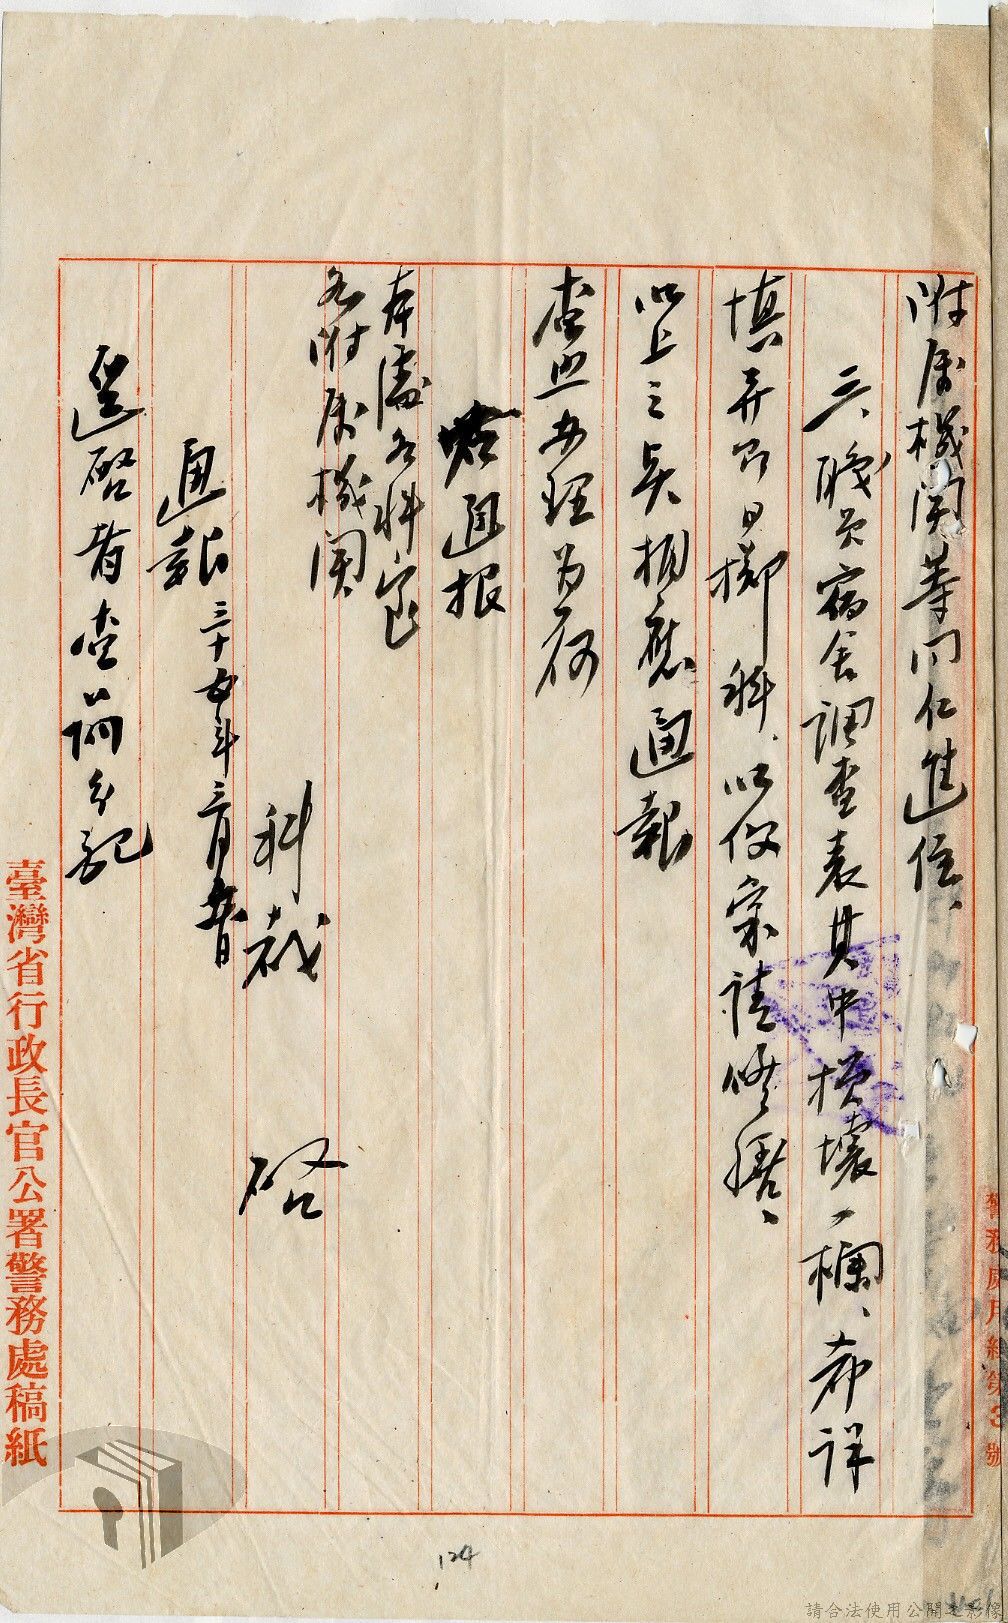 附屬機關等同仁進住、
三、職員宿舍調查表其中損壞一欄、希詳
填并即日擲科、以便彙請修繕、
以上三點相應通報
查照辦理為荷
通报
本處各科室
各附屬機關
科 啓
通報 三十五年三月 日
逕啓者查前分配
臺灣省行政長官公署警務處稿紙
124
請合法使用公開之影像